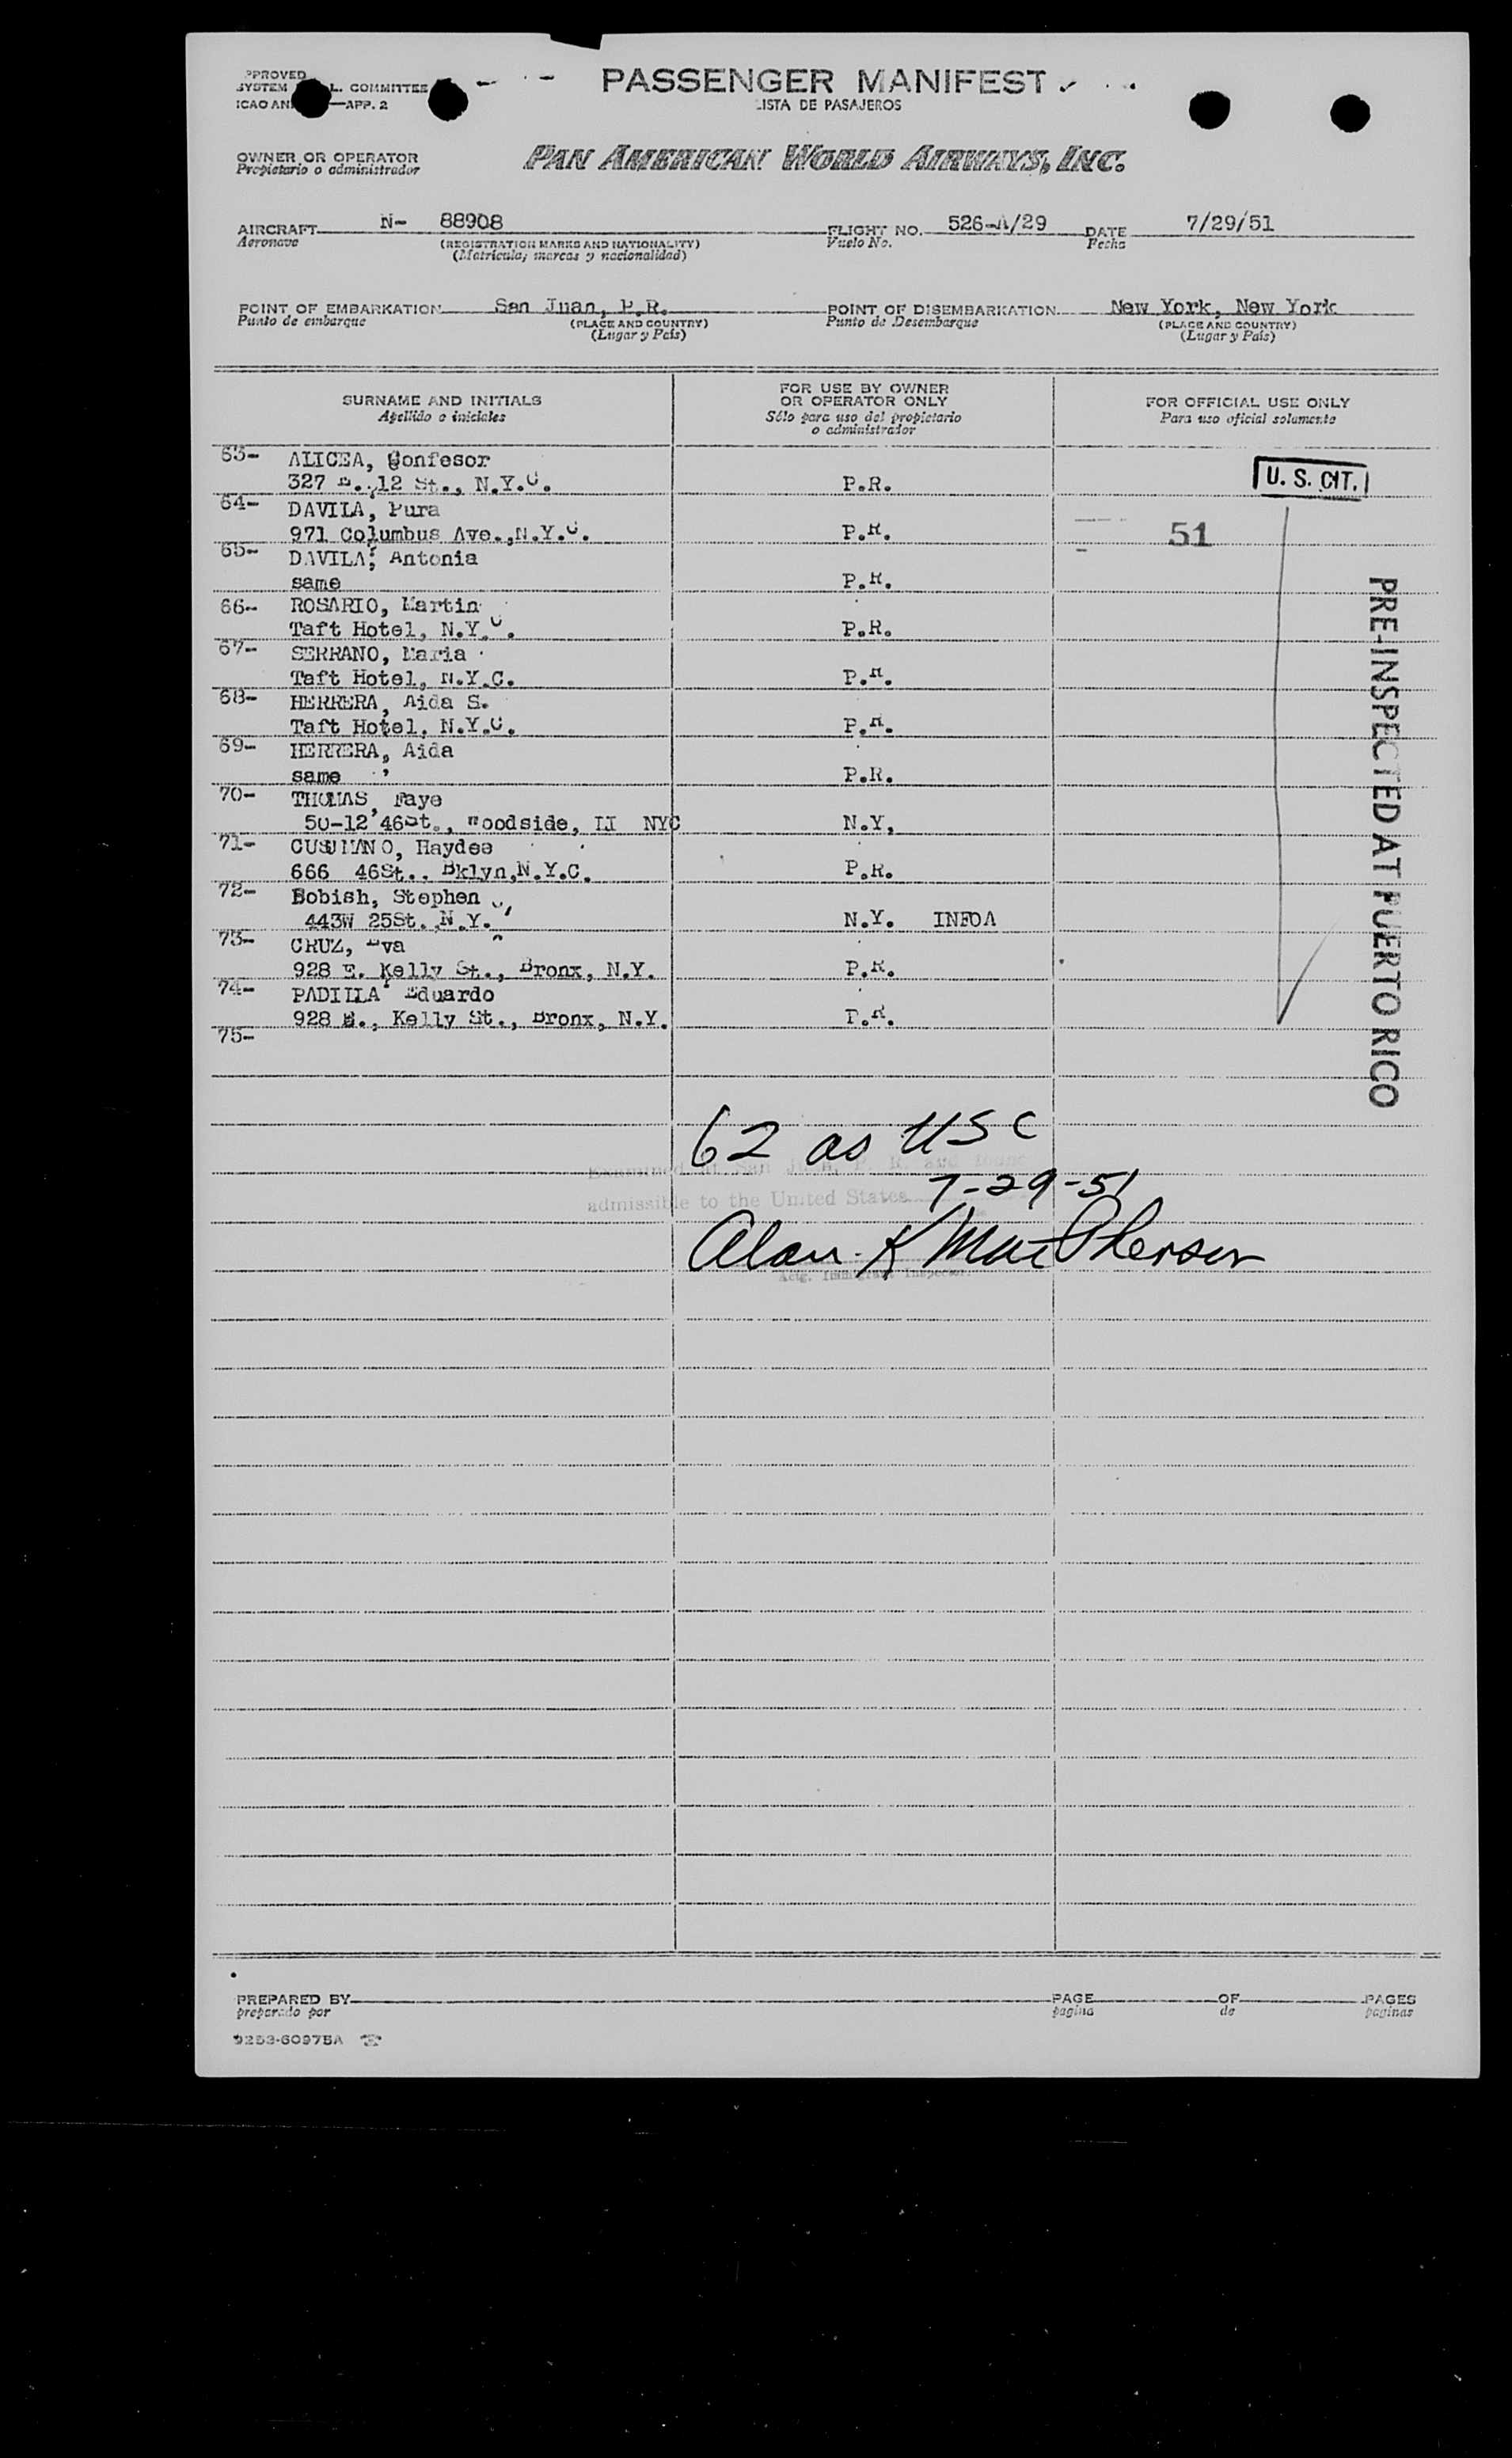 PASSENGER MANIFEST
LISTA DE PASAJEROS
PPROVED
SYSTEM L. COMMITTEE
ICAO AN —APP. 2
OWNER OR OPERATOR
Propietario o administrador
PAN AMERICAN WORLD AIRWAYS, INC.
AIRCRAFT N- 88908 FLIGHT NO. 526-A/29 DATE 7/29/51
Aeronave (REGISTRATION MARKS AND NATIONALITY) Vuelo No. Fecha
(Matricula; marcas y nacionalidad)
POINT OF EMBARKATION San Juan, P.R. POINT OF DISEMBARKATION New York, New York
Punto de embarque (PLACE AND COUNTRY) Punto de Desembarque (PLACE AND COUNTRY)
(Lugar y País) (Lugar y País)
SURNAME AND INITIALS FOR USE BY OWNER OR OPERATOR ONLY FOR OFFICIAL USE ONLY
Apellido e iniciales Sólo para uso del propietario o administrador Para uso oficial solamente
63- ALICEA, Confesor
327 E. 12 St., N.Y.C. P.R. U. S. CIT.
64- DAVILA, Pura
971 Columbus Ave.,N.Y.C. P.R. 51
65- DAVILA, Antonia
same P.R.
66- ROSARIO, Martin
Taft Hotel, N.Y.C. P.R.
67- SERRANO, Maria
Taft Hotel, N.Y.C. P.R.
68- HERRERA, Aida S.
Taft Hotel, N.Y.C. P.R.
69- HERRERA, Aida
same P.R.
70- THOMAS, Faye
50-12 46St., Woodside, LI NYC N.Y.
71- Haydee
666 46St., Bklyn,N.Y.C. P.R.
72- Bobish, Stephen
443W 25St. N.Y. N.Y. INFOA
73- CRUZ, Eva
928 E. Kelly St., Bronx, N.Y. P.R.
74- PADILLA Eduardo
928 E., Kelly St., Bronx, N.Y. P.R.
75-
PRE-INSPECTED AT PUERTO RICO
62 as USC
Examined at San Juan, P. R. and found
7-29-51
admissible to the United States
Alan K MacPherson
Actg. Immigrant Inspector.
PREPARED BY PAGE OF PAGES
preparado por pagina de paginas
9253-6097BA